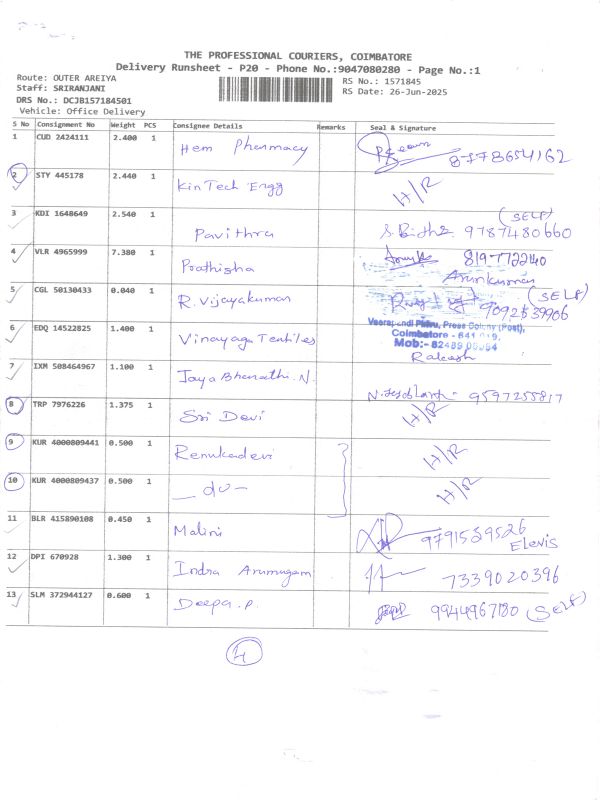 THE PROFESSIONAL COURIERS, COIMBATORE
Delivery Runsheet - P20 - Phone No.:9047080280 - Page No.:1
Route: OUTER AREIYA
RS No.: 1571845
Staff: SRIRANJANI
RS Date: 26-Jun-2025
DRS No.: DCJB157184501
Vehicle: Office Delivery
S No Consignment No Weight PCS Consignee Details Remarks Seal & Signature
1 CUD 2424111 2.400 1 Hem Pharmacy 8778654162
2 STY 445178 2.440 1 KinTech Engg H/R
3 KDI 1648649 2.540 1 Pavithra (SELF) 9787480660
4 VLR 4965999 7.380 1 Prathisha Arunkumar
5 CGL 50130433 0.040 1 R. Vijayakumar (SELF) 9092539906
6 EDQ 14522825 1.400 1 Vinayaga Textiles Press Colony (Post), Coimbatore - 641 019. Mob:- Rakesh
7 IXM 508464967 1.100 1 Jaya Bharathi. N. 9597255817
8 TRP 7976226 1.375 1 Sri Devi H/R
9 KUR 4000809441 0.500 1 Renukadevi H/R
10 KUR 4000809437 0.500 1 — do — H/R
11 BLR 415890108 0.450 1 Malini 9791539526
12 DPI 670928 1.300 1 Indra Arumugam 7339020396
13 SLM 372944127 0.600 1 Deepa. P. 9944967180 (SELF)
4